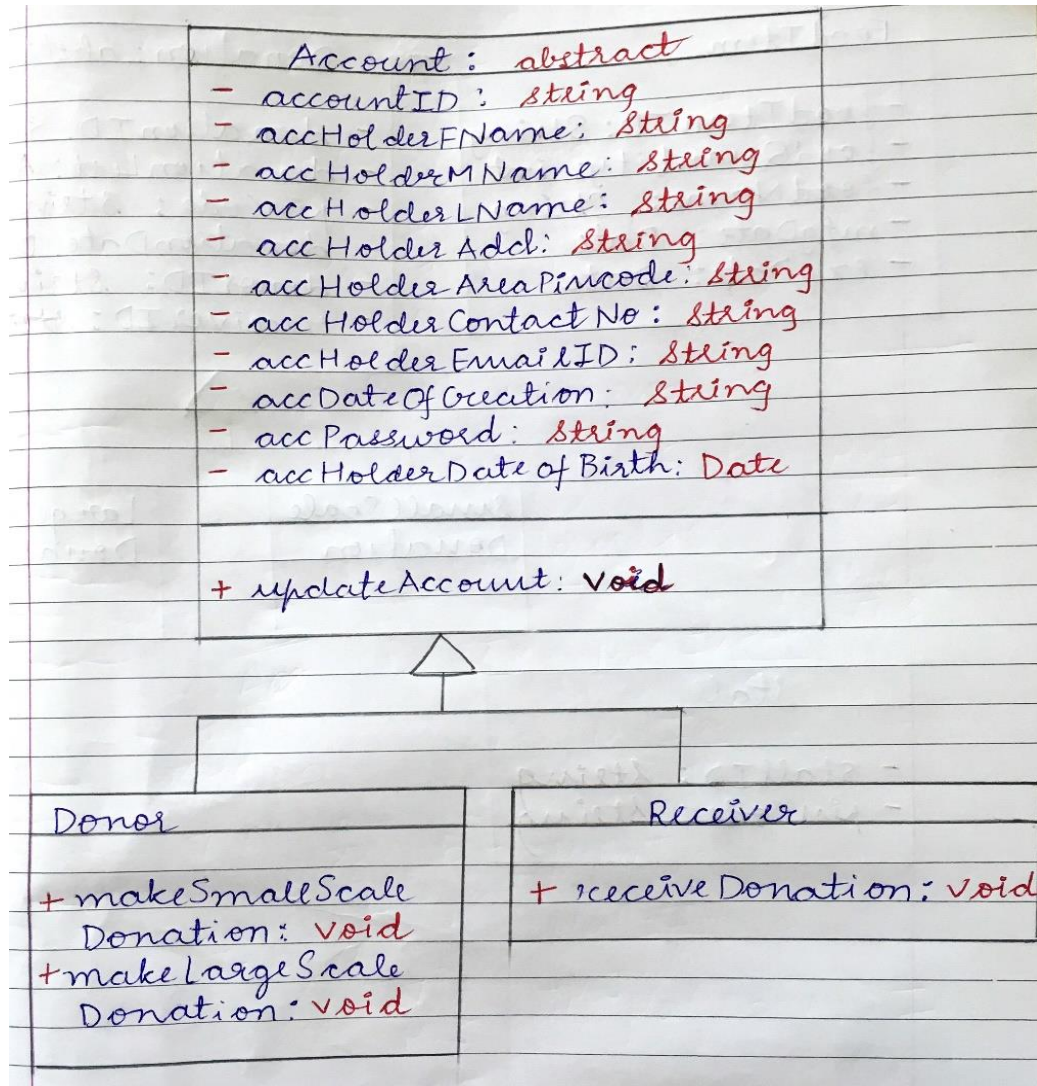 Account: abstract
- accountID: string
- accHolderFName: String
- accHolderMName: String
- accHolderLName: String
- accHolderAdd: String
- accHolderAreaPincode: String
- accHolderContactNo: String
- accHolderEmailID: String
- accDateOfCreation: String
- accPassword: String
- accHolderDateofBirth: Date
+ updateAccount: Void
Donor
+ makeSmallScale
Donation: void
+ makeLargeScale
Donation: void
Receiver
+ receiveDonation: void